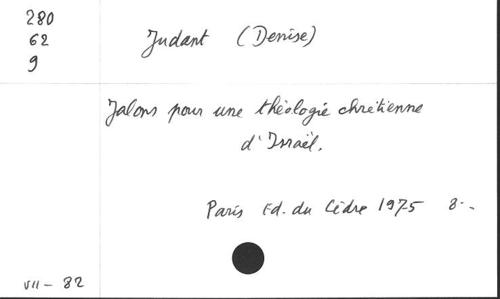 280
62
9
Judant (Denise)
Jalons pour une théologie chrétienne
d'Israël.
Paris Ed. du Cèdre 1975 8.-
VII - 82